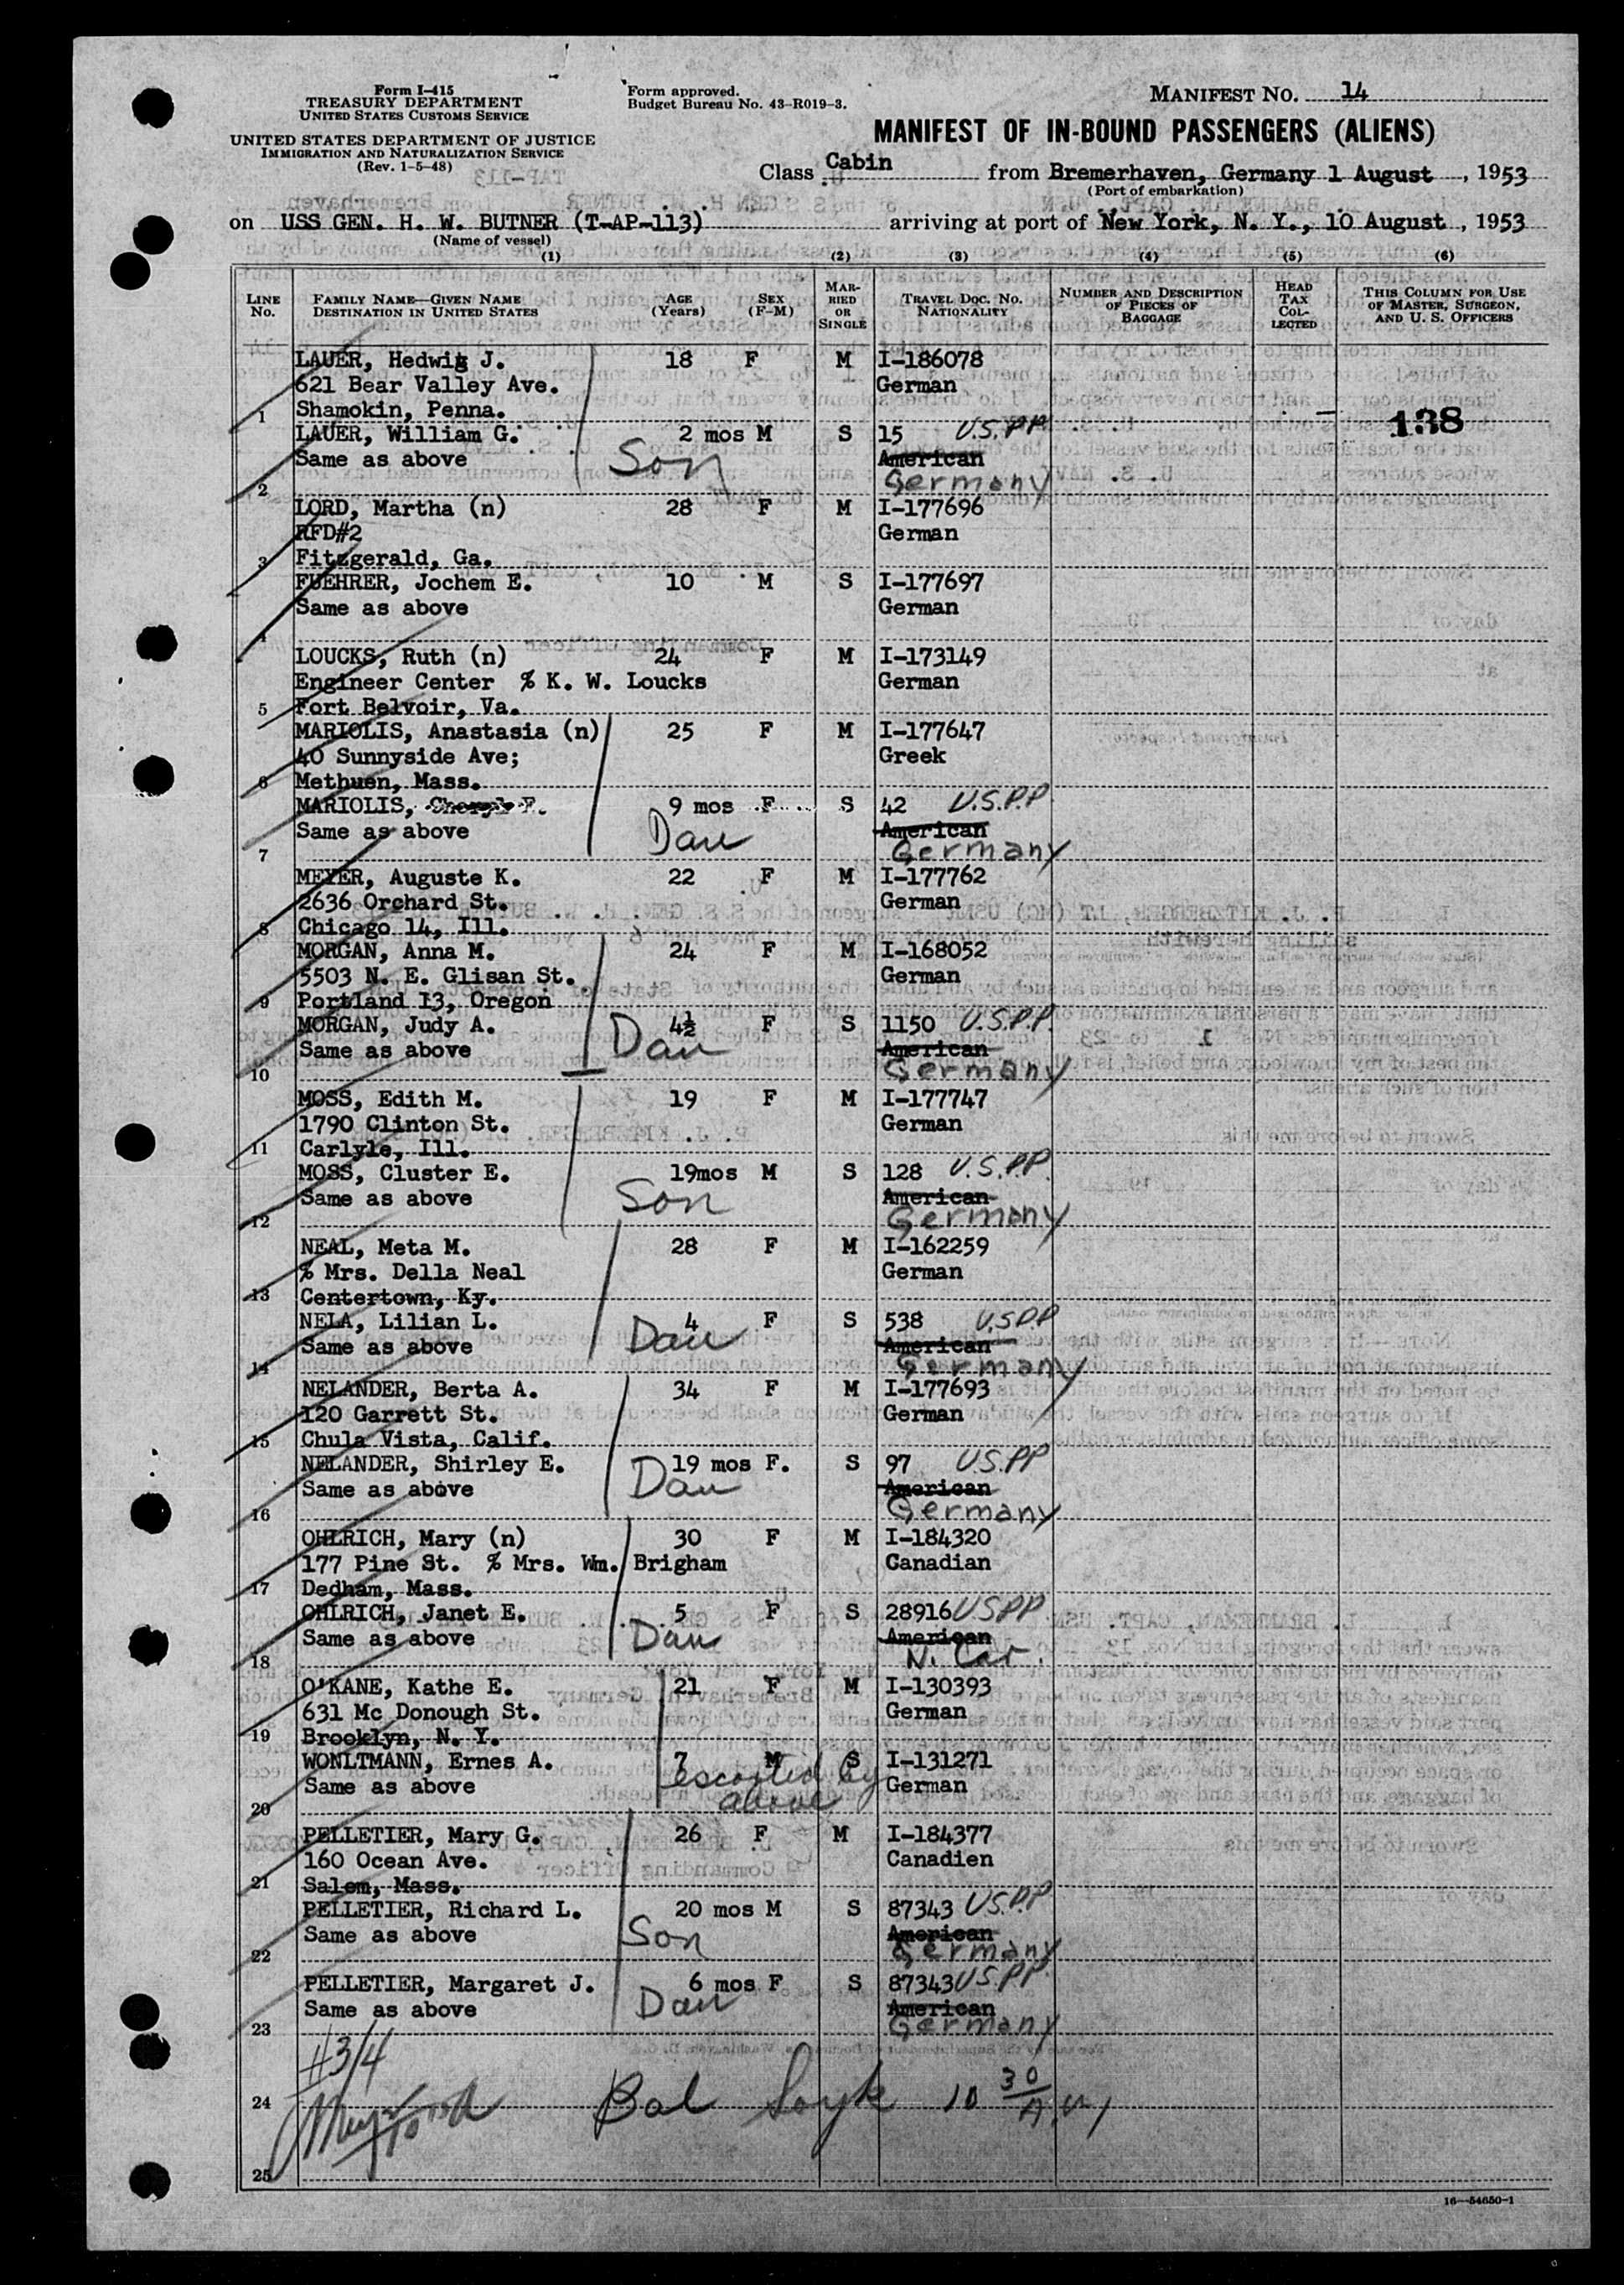 Form I-415
TREASURY DEPARTMENT
UNITED STATES CUSTOMS SERVICE
UNITED STATES DEPARTMENT OF JUSTICE
IMMIGRATION AND NATURALIZATION SERVICE
(Rev. 1-5-48)
Form approved.
Budget Bureau No. 43-R019-3.
MANIFEST NO. 14
MANIFEST OF IN-BOUND PASSENGERS (ALIENS)
Class Cabin from Bremerhaven, Germany 1 August, 1953
(Port of embarkation)
on USS GEN. H. W. BUTNER (T-AP-113) arriving at port of New York, N. Y., 10 August, 1953
(Name of vessel)
(1) (2) (3) (4) (5) (6)
LINE NO. FAMILY NAME—GIVEN NAME DESTINATION IN UNITED STATES AGE (Years) SEX (F-M) MARRIED OR SINGLE TRAVEL DOC. NO. NATIONALITY NUMBER AND DESCRIPTION OF PIECES OF BAGGAGE HEAD TAX COLLECTED THIS COLUMN FOR USE OF MASTER, SURGEON, AND U. S. OFFICERS
LAUER, Hedwig J. 18 F M I-186078
621 Bear Valley Ave. German
1 Shamokin, Penna. — 138
LAUER, William G. 2 mos M S 15 U.S.PP
Same as above Son American
2 Germany
LORD, Martha (n) 28 F M I-177696
RFD#2 German
3 Fitzgerald, Ga.
FUEHRER, Jochem E. 10 M S I-177697
Same as above German
4
LOUCKS, Ruth (n) 24 F M I-173149
Engineer Center % K. W. Loucks German
5 Fort Belvoir, Va.
MARIOLIS, Anastasia (n) 25 F M I-177647
40 Sunnyside Ave; Greek
6 Methuen, Mass.
MARIOLIS, Cheryl F. 9 mos F S 42 U.S.P.P
Same as above Dau American
7 Germany
MEYER, Auguste K. 22 F M I-177762
2636 Orchard St. German
8 Chicago 14, Ill.
MORGAN, Anna M. 24 F M I-168052
5503 N. E. Glisan St. German
9 Portland 13, Oregon
MORGAN, Judy A. 4½ F S 1150 U.S.P.P.
Same as above Dau American
10 Germany
MOSS, Edith M. 19 F M I-177747
1790 Clinton St. German
11 Carlyle, Ill.
MOSS, Cluster E. 19mos M S 128 U.S.P.P.
Same as above Son American
12 Germany
NEAL, Meta M. 28 F M I-162259
% Mrs. Della Neal German
13 Centertown, Ky.
NELA, Lilian L. 4 F S 538 U.S.P.P
Same as above Dau American
14 Germany
NELANDER, Berta A. 34 F M I-177693
120 Garrett St. German
15 Chula Vista, Calif.
NELANDER, Shirley E. 19 mos F. S 97 U.S.PP
Same as above Dau American
16 Germany
OHLRICH, Mary (n) 30 F M I-184320
177 Pine St. % Mrs. Wm. Brigham Canadian
17 Dedham, Mass.
OHLRICH, Janet E. 5 F S 28916 USPP
Same as above Dau American
18 N. Car.
O'KANE, Kathe E. 21 F M I-130393
631 Mc Donough St. German
19 Brooklyn, N. Y.
WONLTMANN, Ernes A. 7 M S I-131271
Same as above escorted by German
20 above
PELLETIER, Mary G. 26 F M I-184377
160 Ocean Ave. Canadien
21 Salem, Mass.
PELLETIER, Richard L. 20 mos M S 87343 U.S.P.P
Same as above Son American
22 Germany
PELLETIER, Margaret J. 6 mos F S 87343 U.S.PP.
Same as above Dau American
23 Germany
#3/4
24 Bal 10 30/A.M
25
16—54650-1